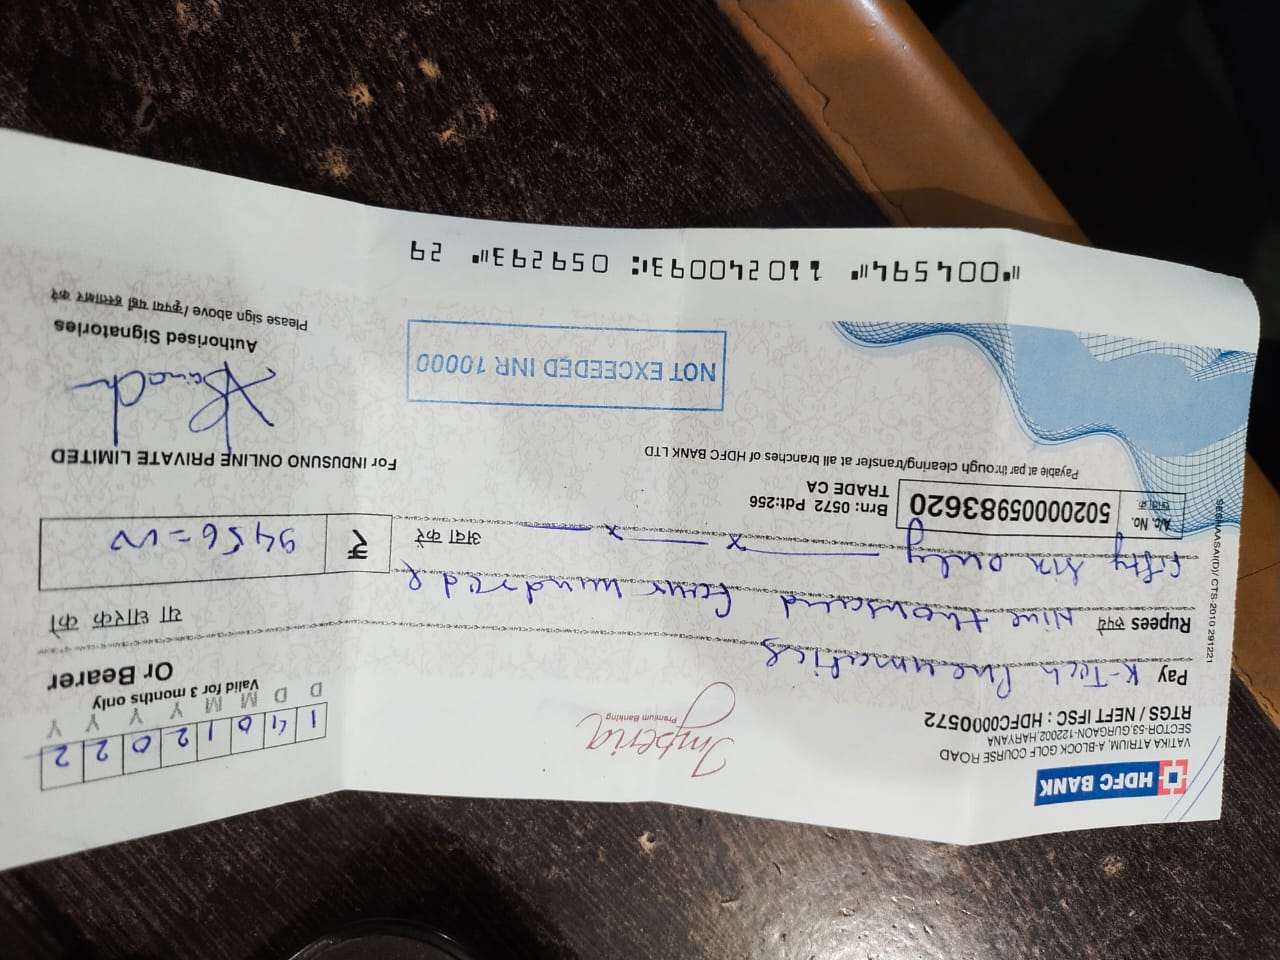 HDFC BANK
VATIKA ATRIUM, A-BLOCK GOLF COURSE ROAD
SECTOR-53,GURGAON-122002,HARYANA
RTGS / NEFT IFSC : HDFC0000572
Imperia
Premium Banking
1 4 0 1 2 0 2 2
D D M M Y Y Y Y
Valid for 3 months only
Pay K-Tech Pneumatics
Or Bearer
या धारक को
Rupees रुपये Nine thousand four hundred
fifty six only x x
अदा करें
₹ 9456=00
A/c. No. 50200005983620
Brn: 0572 Pdt:256
TRADE CA
Payable at par through clearing/transfer at all branches of HDFC BANK LTD
For INDUSUNO ONLINE PRIVATE LIMITED
NOT EXCEEDED INR 10000
Authorised Signatories
Please sign above / कृपया यहाँ हस्ताक्षर करें
SESHAASAI(D) / CTS-2010 291221
⑈004594⑈ 110240093⑆ 059293⑈ 29